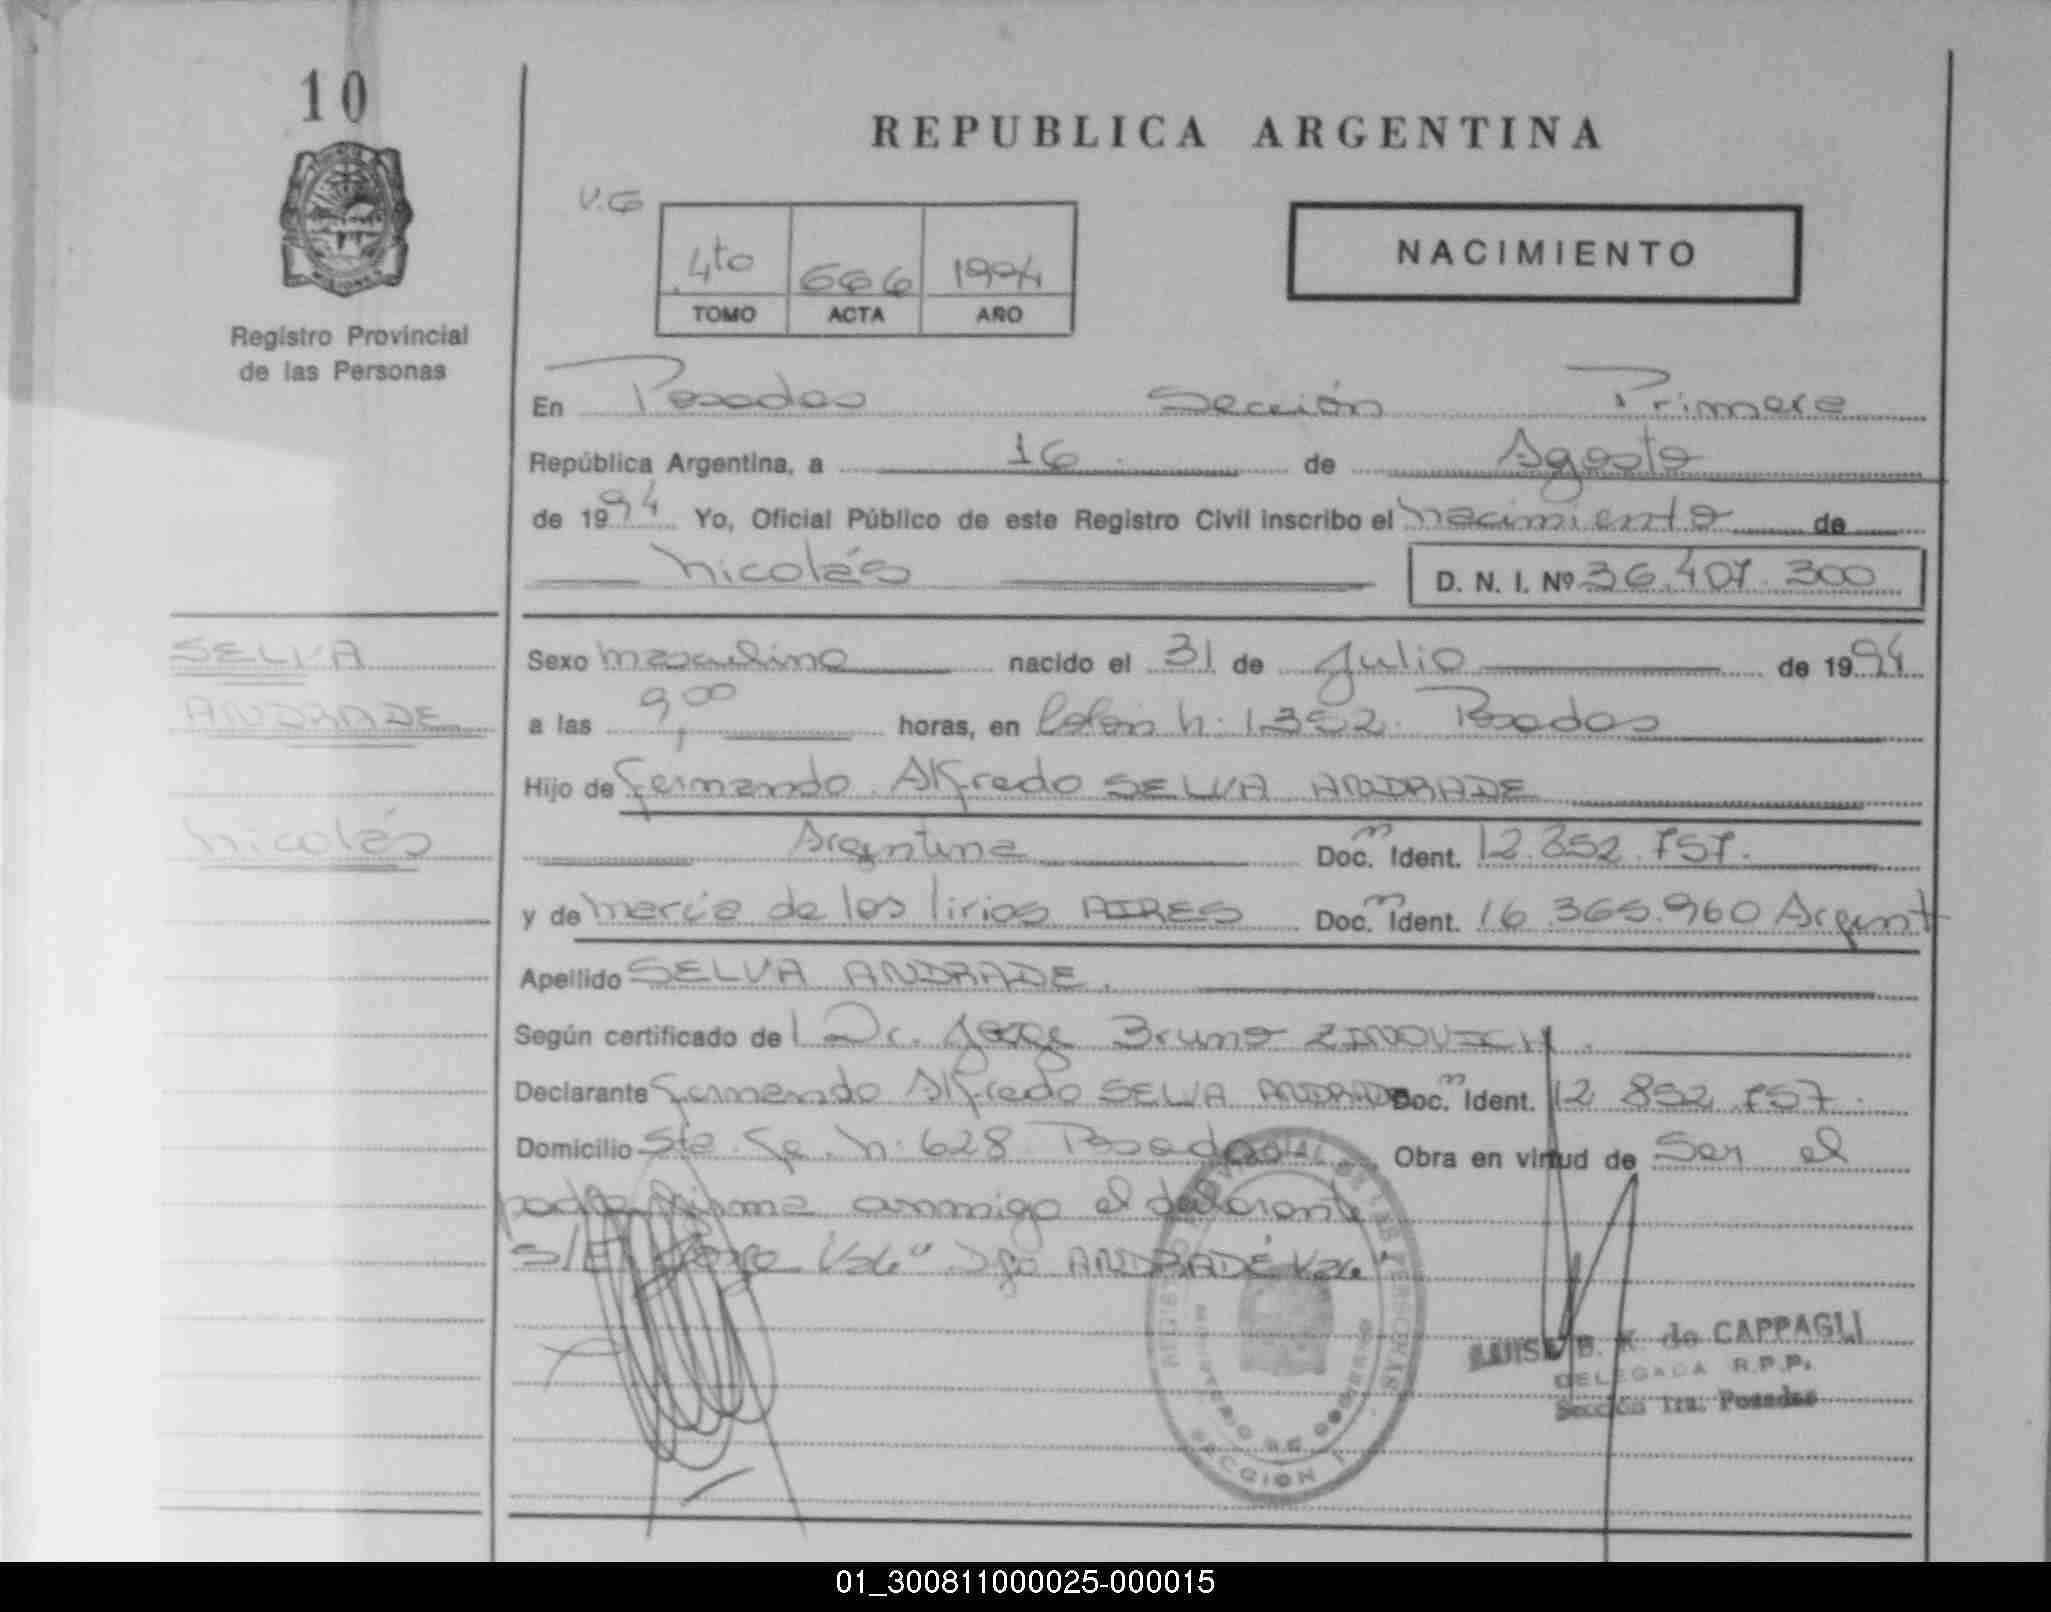 10
REPUBLICA ARGENTINA
V.G
4to 666 1994
TOMO ACTA AÑO
NACIMIENTO
Registro Provincial
de las Personas
En Posadas Sección Primera
República Argentina, a 16 de Agosto
de 1994 Yo, Oficial Público de este Registro Civil inscribo el nacimiento de
Nicolás D. N. I. Nº 36.407.300
SELVA
ANDRADE
Nicolás
Sexo masculino nacido el 31 de Julio de 1994
a las 9,00 horas, en Colón N: 1352. Posadas
Hijo de Fernando Alfredo SELVA ANDRADE
Argentina Doc. m Ident. 12.852.757.
y de María de los lirios AIRES Doc. m Ident. 16.365.960 Argent
Apellido SELVA ANDRADE.
Según certificado de l Dr. Jorge Bruno ZINOVICH.
Declarante Fernando Alfredo SELVA ANDRADE Doc. m Ident. 12 852 757.
Domicilio Sta. Fe. N: 628 Posadas Obra en virtud de Ser el
padre firma conmigo el declarante
S/E ANDRADE Vale
REGISTRO PROVINCIAL DE LAS PERSONAS
MINISTERIO DE GOBIERNO
SECCION 1
LUISA B. K. de CAPPAGLI
DELEGADA R.P.P.
Sección 1ra. Posadas
01_300811000025-000015